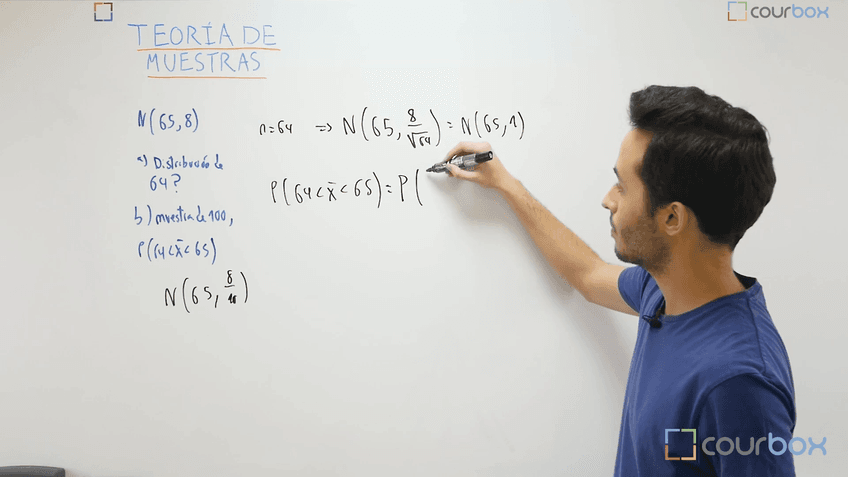 courbox
TEORÍA DE
MUESTRAS
N(65,8)
a) Distribución de
64?
b) muestra de 100,
P(64<x̄<65)
N(65, 8/10)
n=64 => N(65, 8/√64) = N(65,1)
P(64<x̄<65) = P(
courbox